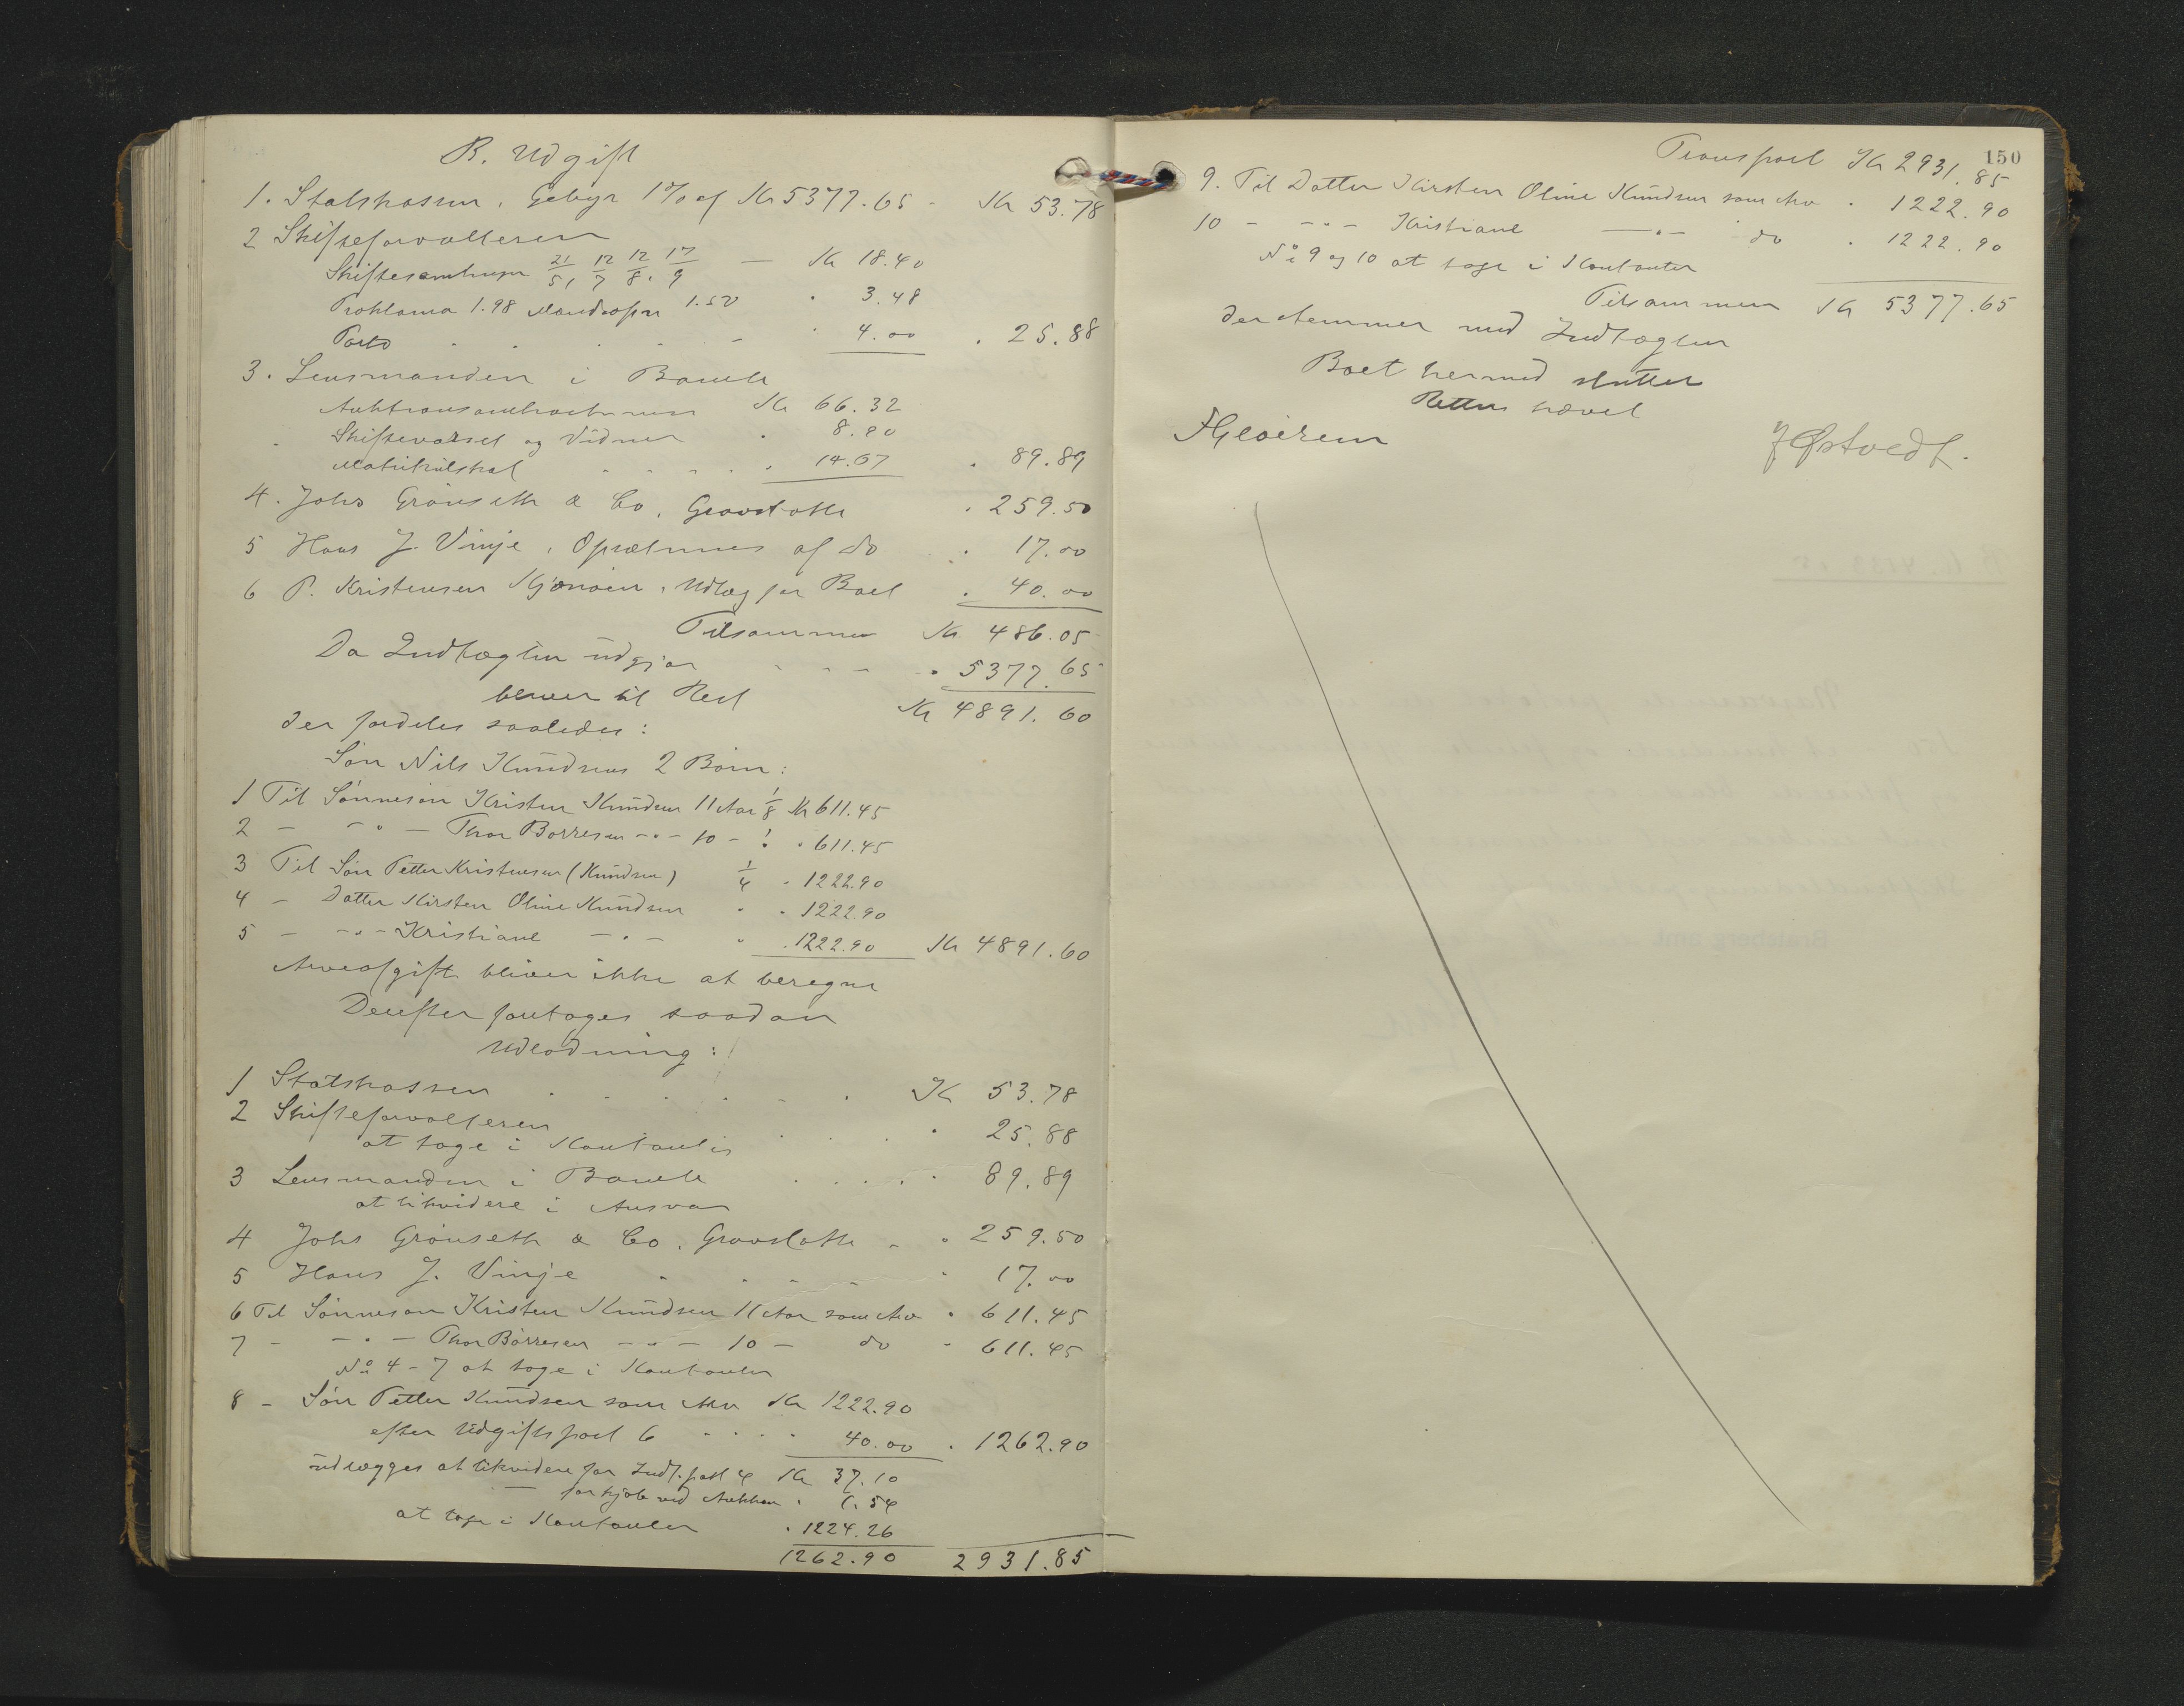 B. Udgift
1. Statskassen, Gebyr 1% af Kr 5377.65 - Kr 53.78
2 Skifteforvalteren
Skiftesamlinger 21/5, 12/7 12/8. 17/9 — Kr 18.40
Proklama 1.98 1.50 " 3.48
Porto . . . . . " 4.00 . 25.88
3. Lensmanden i Bamle
Kr 66.32
Skiftevarsel og Vidner . 8.90
Matrikulskat . . . . . 14.67 . 89.89
4. Johs Grønseth & Co, Gravstøtte . 259.50
5 Hans J. Vinje, Opsætning af do . 17.00
6 P. Kristensen, Udlæg for Boet . 40.00
Tilsammen Kr 486.05
Da Indtægten udgjør - - - . 5377.65
bliver til Rest Kr 4891.60
der fordeles saaledes:
Søn Nils Knudsens 2 Børn:
1 Til Sønnesøn Kristen Knudsen 11 Aar 1/8 Kr 611.45
2 — - " — Thor Børresen - " - 10 - " . 611.45
3 Til Søn Petter Kristensen (Knudsen) 1/4 . 1222.90
4 - Datter Kirsten Oline Knudsen " . 1222.90
5 - - " - Kristiane — " — " . 1222.90 Kr 4891.60
Arveafgift bliver ikke at beregne
Derefter foretages saadan
Udlodning:
1 Statskassen . . . . . . Kr 53.78
2 Skifteforvalteren . . . . " 25.88
at tage i Kontanter
3 Lensmanden i Bamle . . . . . " 89.89
at likvidere i Ansvar
4 Johs Grønseth & Co, Gravstøtte - " 259.50
5 Hans J. Vinje . . . . " 17.00
6 Til Sønnesøn Kristen Knudsen 11 Aar som Arv " 611.45
7 - - " — Thor Børresen - " - 10 - do " 611.45
No 4 - 7 at tage i Kontanter
8 - Søn Petter Knudsen som Arv Kr 1222.90
efter Udgiftspost 6 . . . . 40.00 . 1262.90
udlægges at likvidere for Indt. post 4 Kr 37.10
— for kjøb ved Auktion " 1.54
at tage i Kontanter " 1224.26
1262.90 2931.85
150
Transport Kr 2931.85
9. Til Datter Kirsten Oline Knudsen som Arv . 1222.90
10 - - " - Kristiane — " — do . 1222.90
No 9 og 10 at tage i Kontanter
Tilsammen Kr 5377.65
der stemmer med Indtægten
Boet hermed sluttet
Retten hævet
J Østvedt.